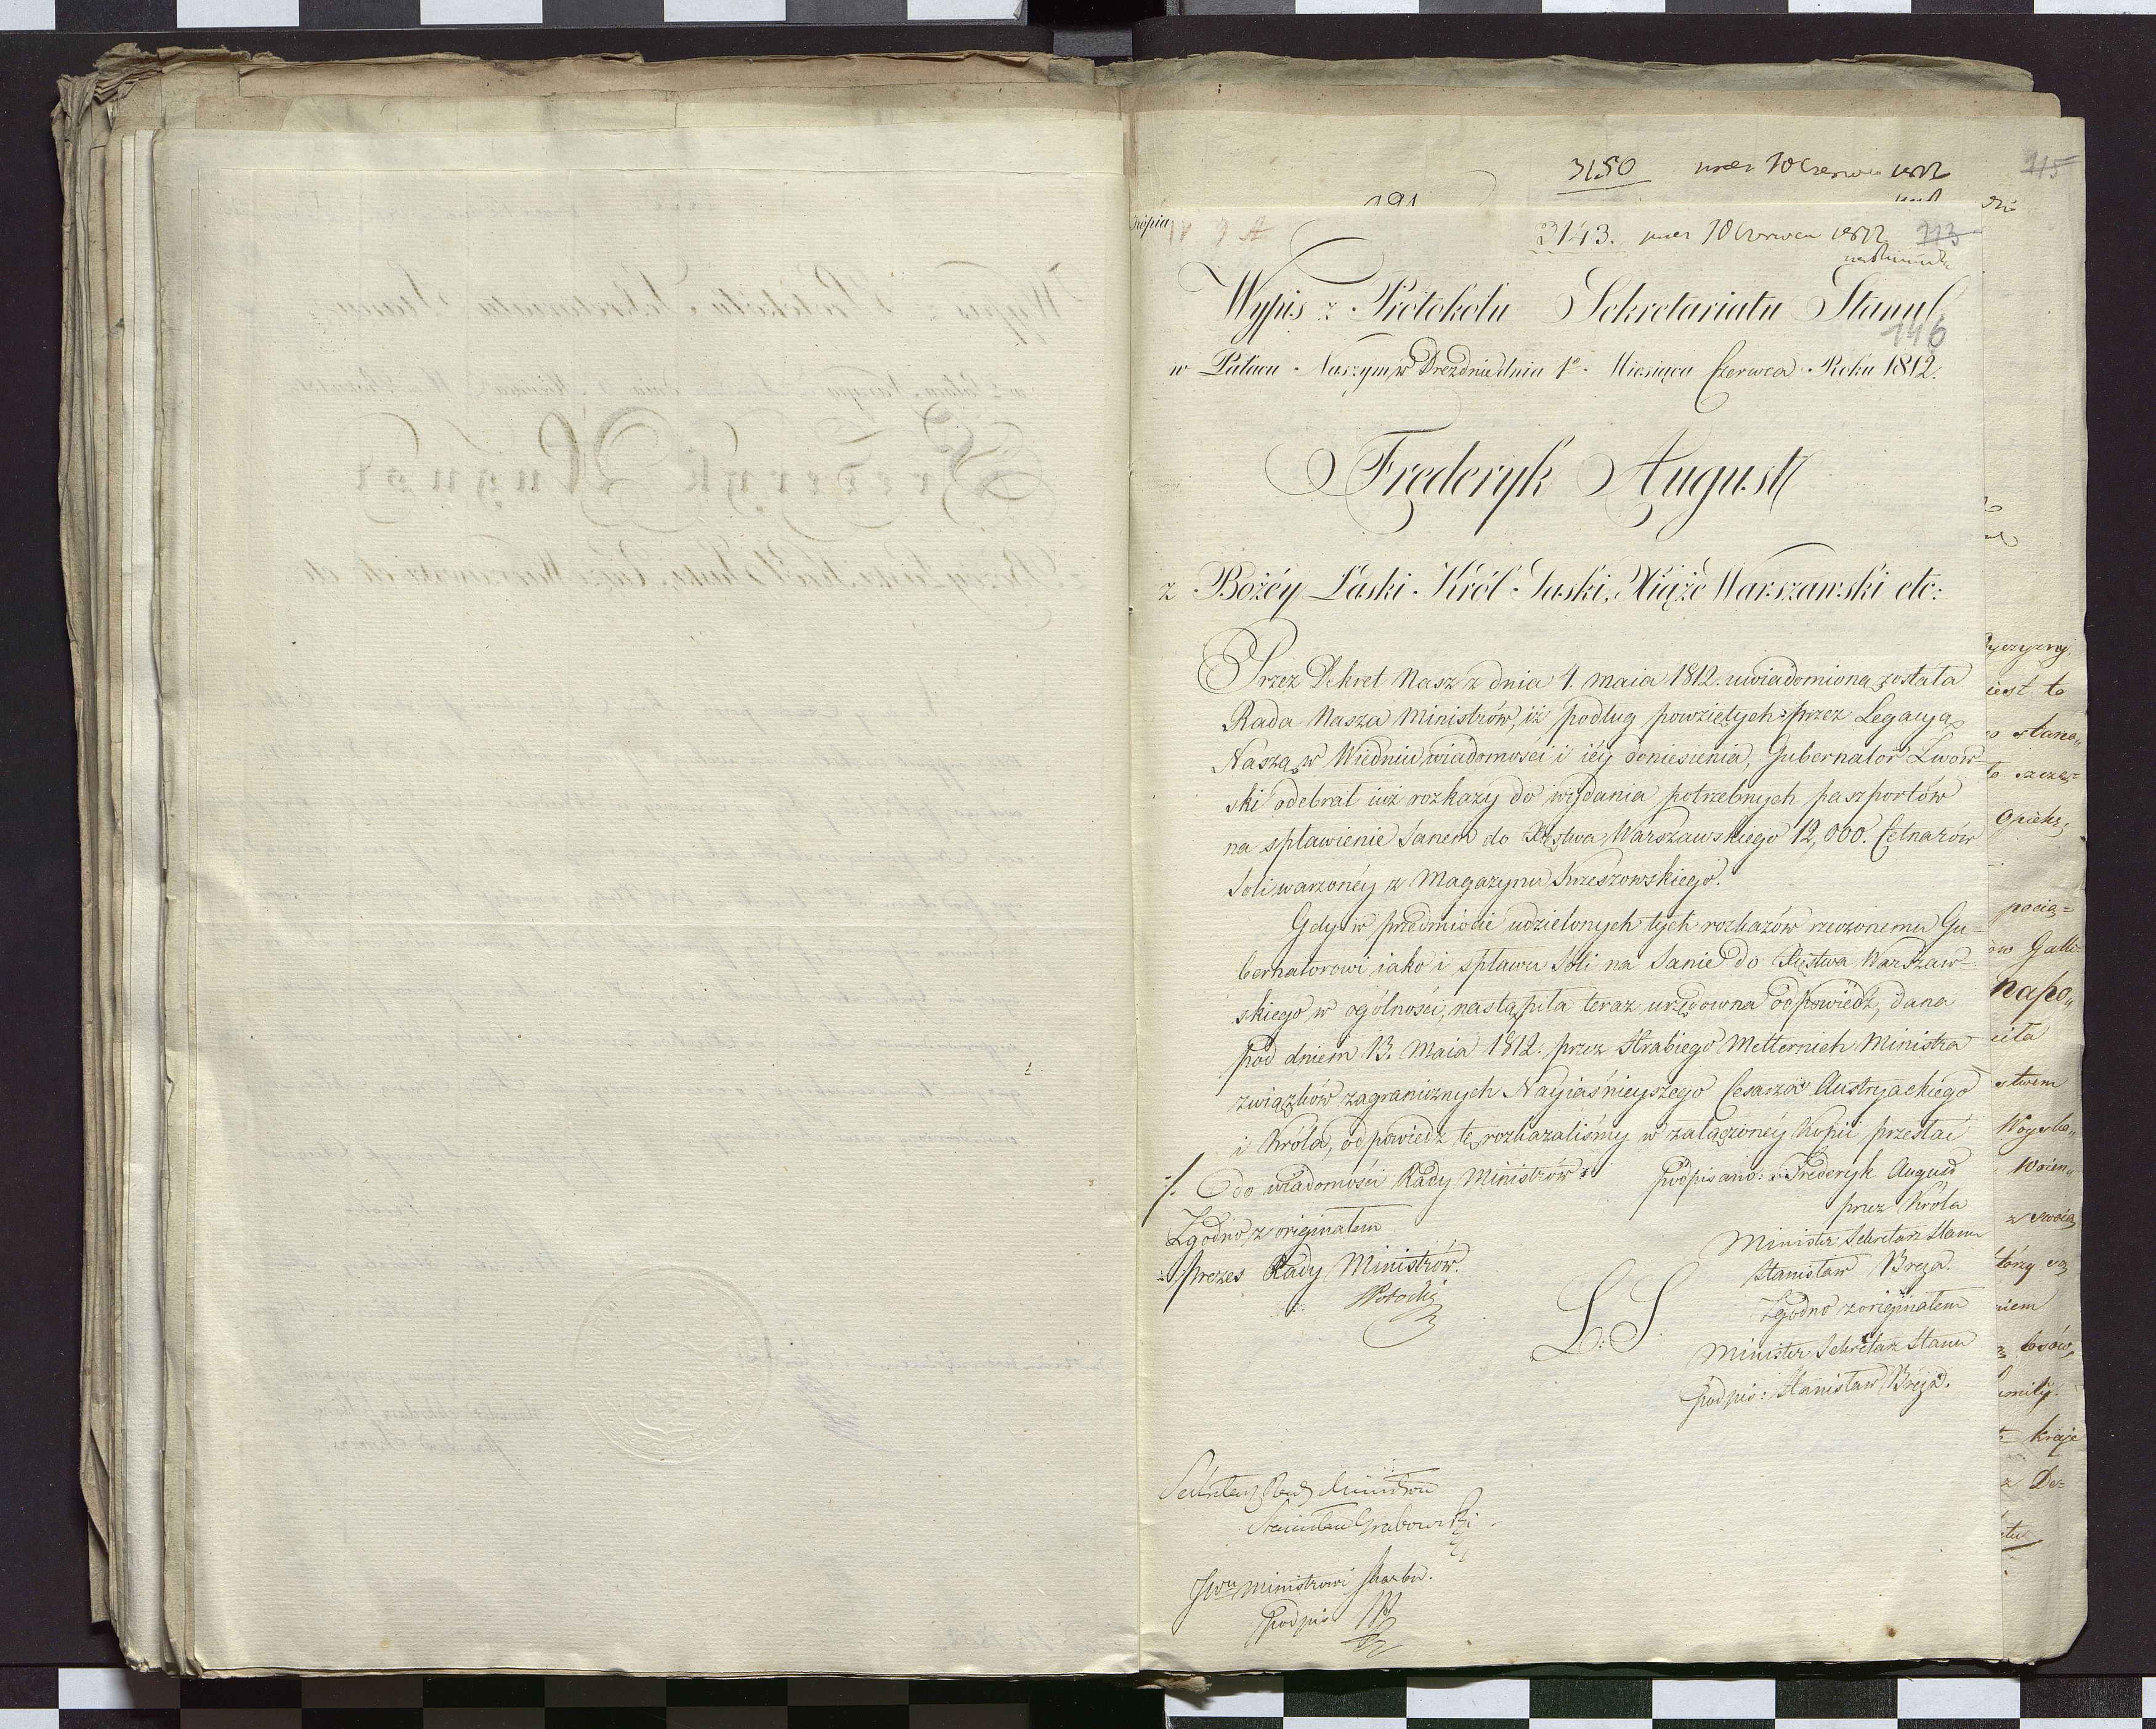 3150
10 Czerwca 1812
115
191
Kopia
3143. 10 Czerwca 1812 113
Wypis z Protokołu Sekretariatu Stanu
146
w Pałacu Naszym w Dreźnie dnia 1º Miesiąca Czerwca Roku 1812.
Fryderyk August
z Bożéy Łaski Król Saski, Xiążę Warszawski etc:
Przez Dekret Nasz z dnia 4. maia 1812. uwiadomiona została
Rada Nasza Ministrów, iż podług powziętych przez Legacyą
Naszą w Wiedniu wiadomości i iéy doniesienia, Gubernator Lwow-
ski odebrał iuż rozkazy do wydania potrzebnych paszportów
na spławienie Sanem do Xięstwa Warszawskiego 12,000. Cetnarów
Soli warzonéy z Magazynu Krzeszowskiego.
Gdy w przedmiocie udzielonych tych rozkazów rzeczonemu Gu-
bernatorowi iako i spławu Soli na Sanie do Xięstwa Warszaw-
skiego w ogólności, nastąpiła teraz urzędowna odpowiedź, dana
pod dniem 13. Maia 1812. przez Hrabiego Metternich Ministra
związków zagranicznych Nayiaśnieyszego Cesarza Austryackiego
i Króla, odpowiedź tę rozkazaliśmy w załączonéy Kopii przesłać
./. do wiadomości Rady Ministrów. podpisano: Frederyk August
przez Króla
Zgodno z originałem
Minister Sekretarz Stanu
Prezes Rady Ministrów.
Stanisław Breza.
Potocki
L.S.
Zgodno z originałem
Minister Sekretarz Stanu
podpis: Stanisław Breza.
Sekretarz Rady Ministrów
Stanisław Grabowski
JWu Ministrowi Skarbu.
podpis
iest to
stano„
szczę=
Opieki
pocią=
Galli
Napo„
stwem
Woysko„
Woien„
z swoią
którzy są
losów,
kraje
z De=